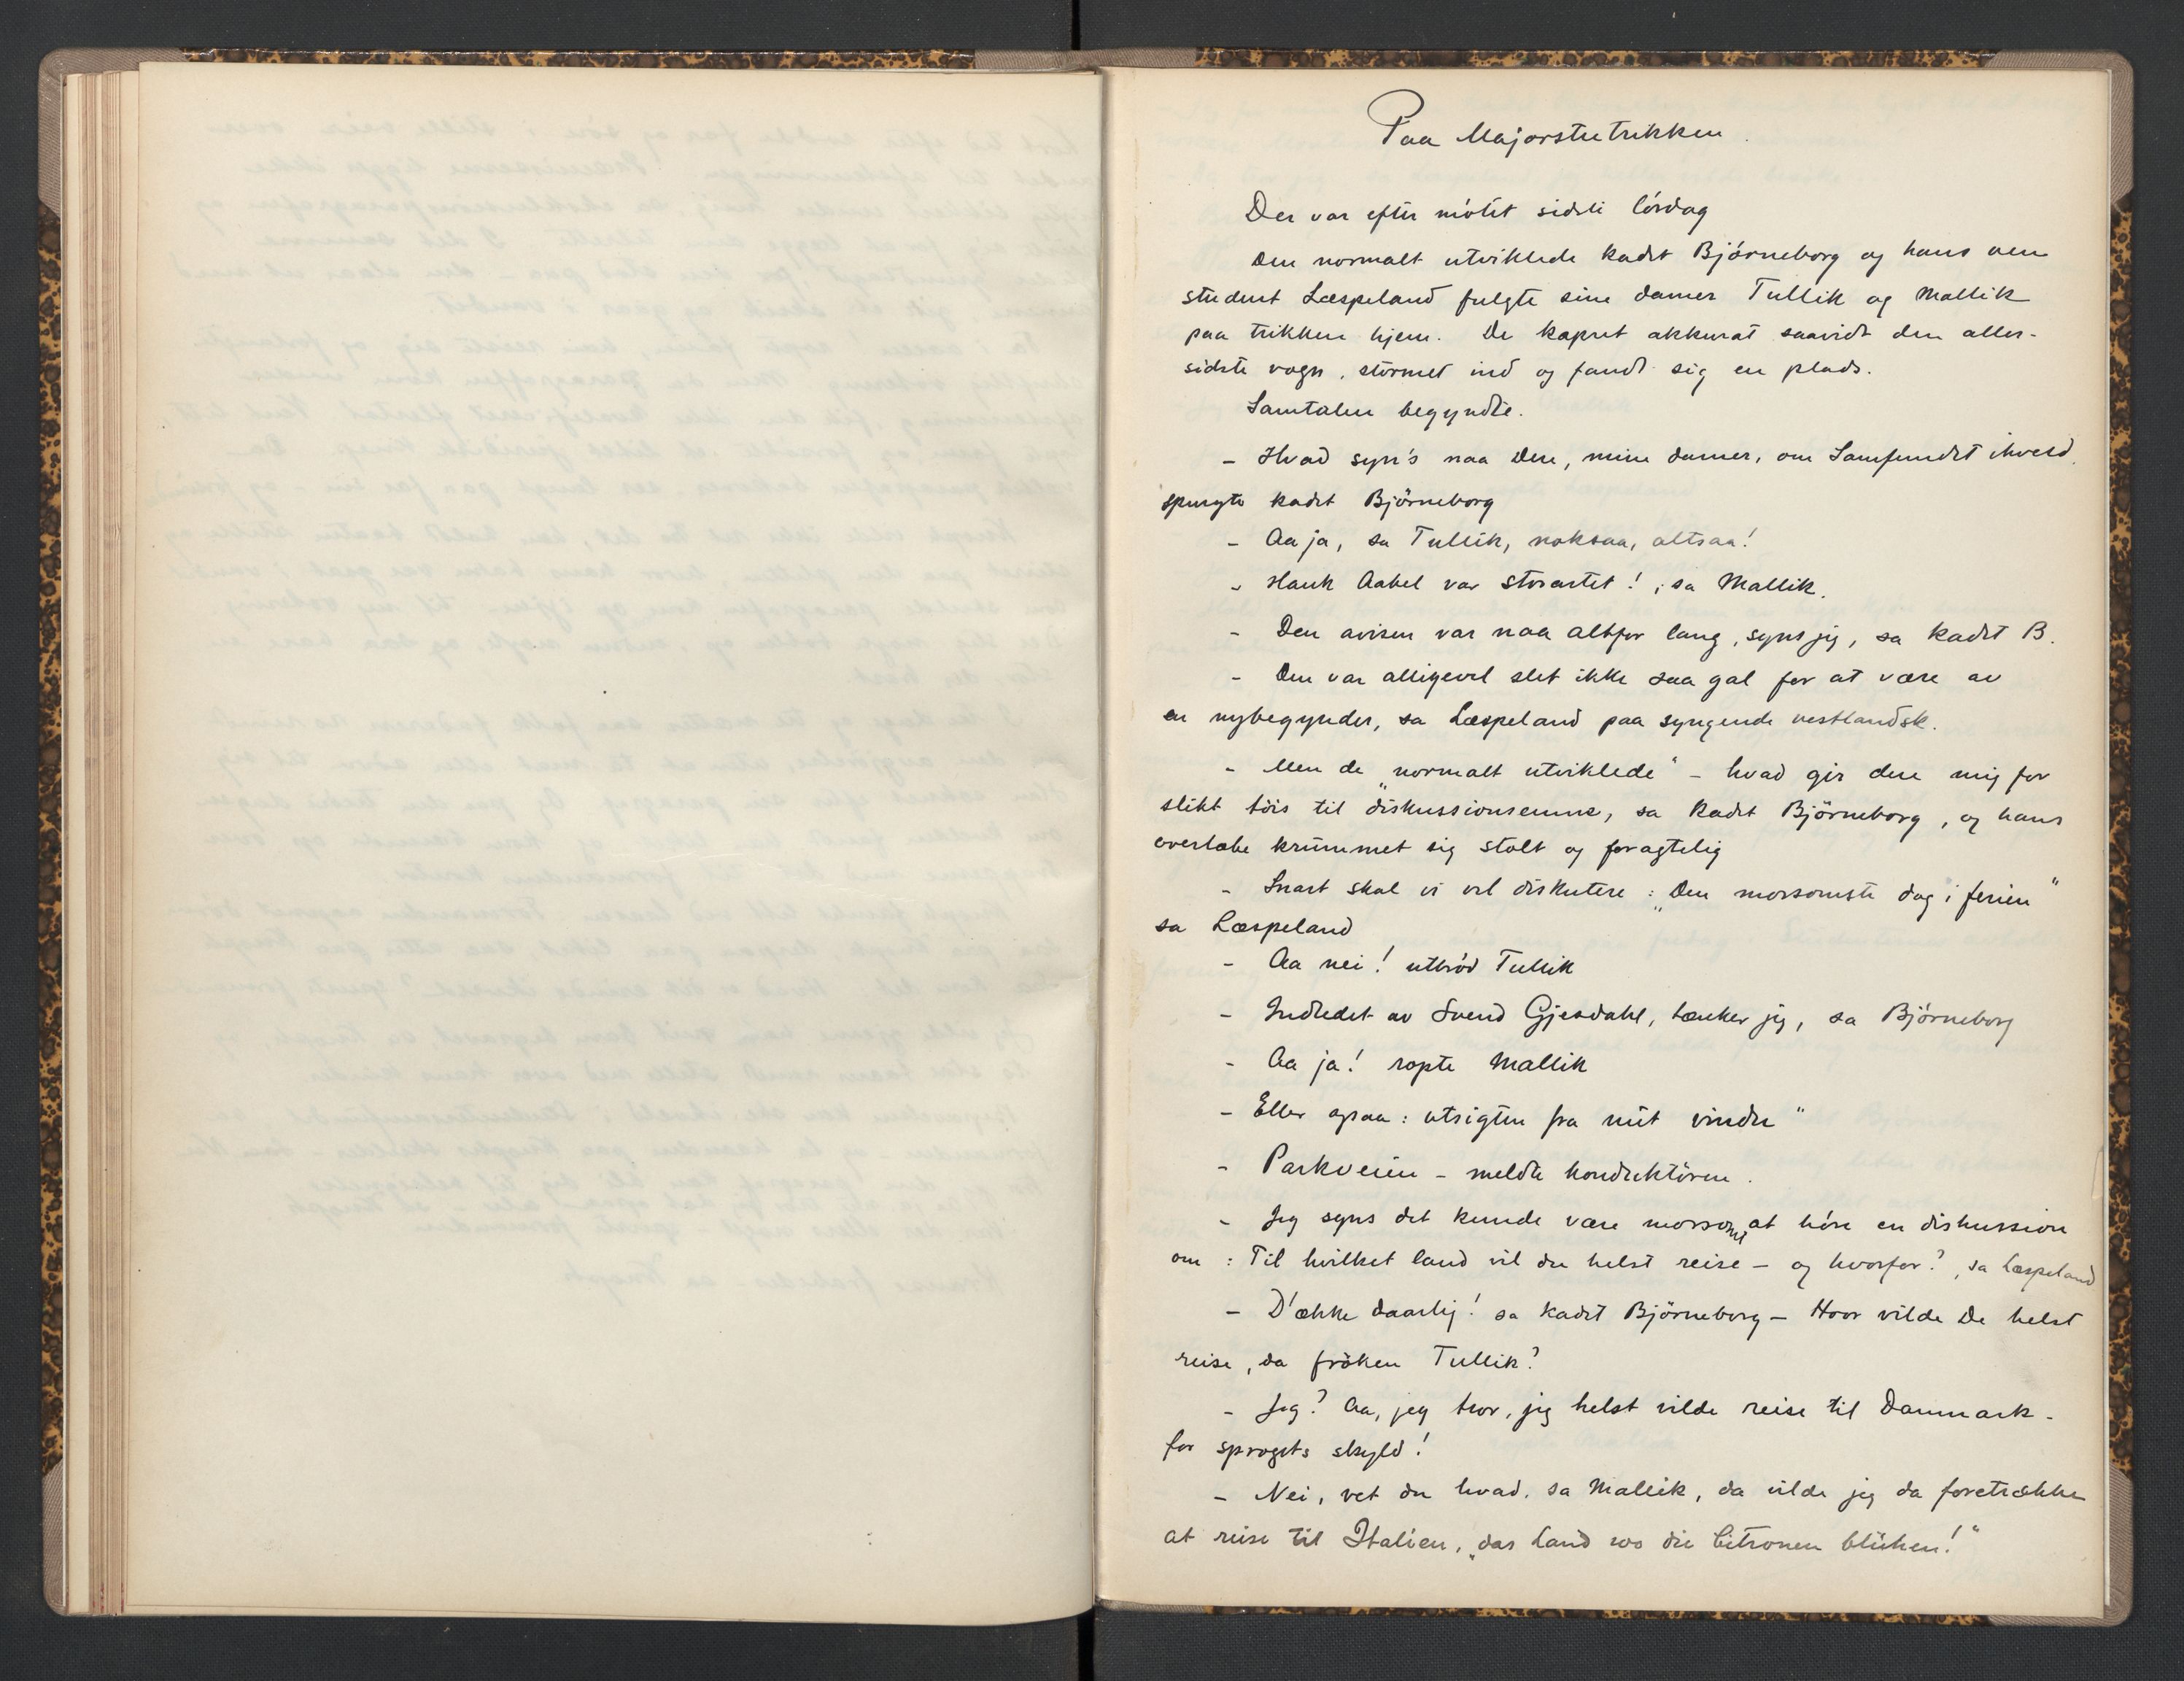 Paa Majorstutrikken.
Der var efter mötet sidste lördag
Den normalt utviklede kadet Björneborg og hans ven
student Læspeland fulgte sine damer Tullik og Mallik
paa trikken hjem. De kapret akkurat saavidt den aller-
sidste vogn, stormet ind og fandt sig en plads.
Samtalen begyndte.
- Hvad syn's naa Dere, mine damer, om Samfundet ikveld,
spurgte kadet Björneborg
- Aa ja, sa Tullik, noksaa, altsaa!
- Hauk Aabel var storartet!, sa Mallik.
- Den avisen var naa altfor lang, syns jeg, sa kadet B.
- Den var alligevel slet ikke saa gal for at være av
en nybegynder, sa Læspeland paa syngende vestlandsk.
- Men de „normalt utviklede" - hvad gir dere mig for
slikt töis til diskussionsemne, sa kadet Björneborg, og hans
overlæbe krummet sig stolt og foragtelig
- Snart skal vi vel diskutere: „Den morsomste dag i ferien"
sa Læspeland
- Aa nei! utbröd Tullik
- Indledet av Svend Gjesdahl, tænker jeg, sa Björneborg
- Aa ja! ropte Mallik
- Eller ogsaa: utsigten fra mit vindu"
- Parkveien - meldte konduktören.
- Jeg syns det kunde være morsomt at höre en diskussion
om: Til hvilket land vil du helst reise - og hvorfor?, sa Læspeland
- D'ække daarlig! sa kadet Björneborg - Hvor vilde De helst
reise, da fröken Tullik?
- Jeg? Aa, jeg tror, jeg helst vilde reise til Danmark -
for sprogets skyld!
- Nei, vet du hvad, sa Mallik, da vilde jeg da foretrække
at reise til Italien, „das Land wo die Citronen blühen!"